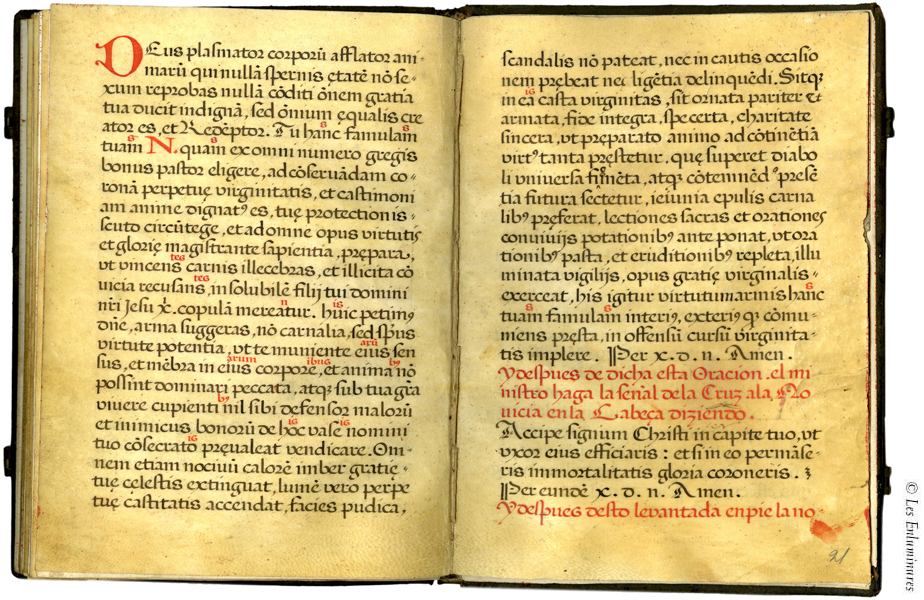 Deus plasmator corporū afflator ani-
marū qui nullā spernis ętatē nō se-
xum reprobas nullā cōditi ōnem gratia
tua ducit indignā, sed ōmium ęqualis cre
ator es, et Redēptor. Tu hanc famulam
s s
tuam N. quam ex omni numero gregis
s s
bonus pastor eligere, ad cōservādam co-
ronā perpetuę virginitatis, et castimoni
am animę dignatꝰ es, tuę protectionis
scuto circūtege, et ad omne opus virtutis
et glorię magistrante sapientia, prępara,
vt vincens carnis illecebras, et illicita cō
tes
vuicia recusans, in solubilē filij tui domini
tes
nr̄i Jesu x̄. copulā mereatur. huic petimꝰ
n is
dn̄e, arma suggeras, nō carnalia, sed sp̄us
virtute potentia, vt te muniente eius sen
arū
sus, et mēbra in eius corpore, et anima nō
arum ibus bꝰ
possint dominari peccata, atqꝫ sub tua gr̄a
vivere cupienti nil sibi defensor malorū
bꝰ
et inimicus bonorū de hoc vase nomini
is is
tuo cōsecrato pręvaleat vendicare. Om-
is
nem etiam nociuū calorē imber gratię
tuę cęlestis extinguat, lumē vero perpe
tuę castitatis accendat, facies pudica,
scandalis nō pateat, nec in cautis occasio
nem prębeat necligētia delinquēdi. Sitqꝫ
in ea casta virginitas, sit ornata pariter et
is
armata, fide integra, spe certa, charitate
sincera, vt pręparato animo ad cōtinētiā
virtꝰ tanta pręstetur, quę superet diabo
li universa figmēta, atqꝫ cōtemnēdo pręsē
tia futura sectetur, ieiunia ępulis carna
libꝰ pręferat, lectiones sacras et orationes
conviuijs potationibꝰ ante ponat, vt ora
tionibꝰ pasta, et eruditionibꝰ repleta, illu
minata vigilijs, opus gratię virginalis
exerceat, his igitur virtutum armis hanc
s
tuam famulam interiꝰ, exteriꝰ qꝫ cōmu-
s s
niens pręsta, in offensū cursū virginita-
tis implere. Per x. d. n. Amen.
Y despues de dicha esta Oracion. el mi
nistro haga la señal de la Cruz a la No
vicia en la Cabeça diziendo.
Accipe signum Christi in capite tuo, vt
vxor eius efficiaris : et si in eo permāse-
ris immortalitatis gloria coroneris.
Per eundē x. d. n. Amen.
Y despues desto levantada en pie la no-
21
© Les Enluminures